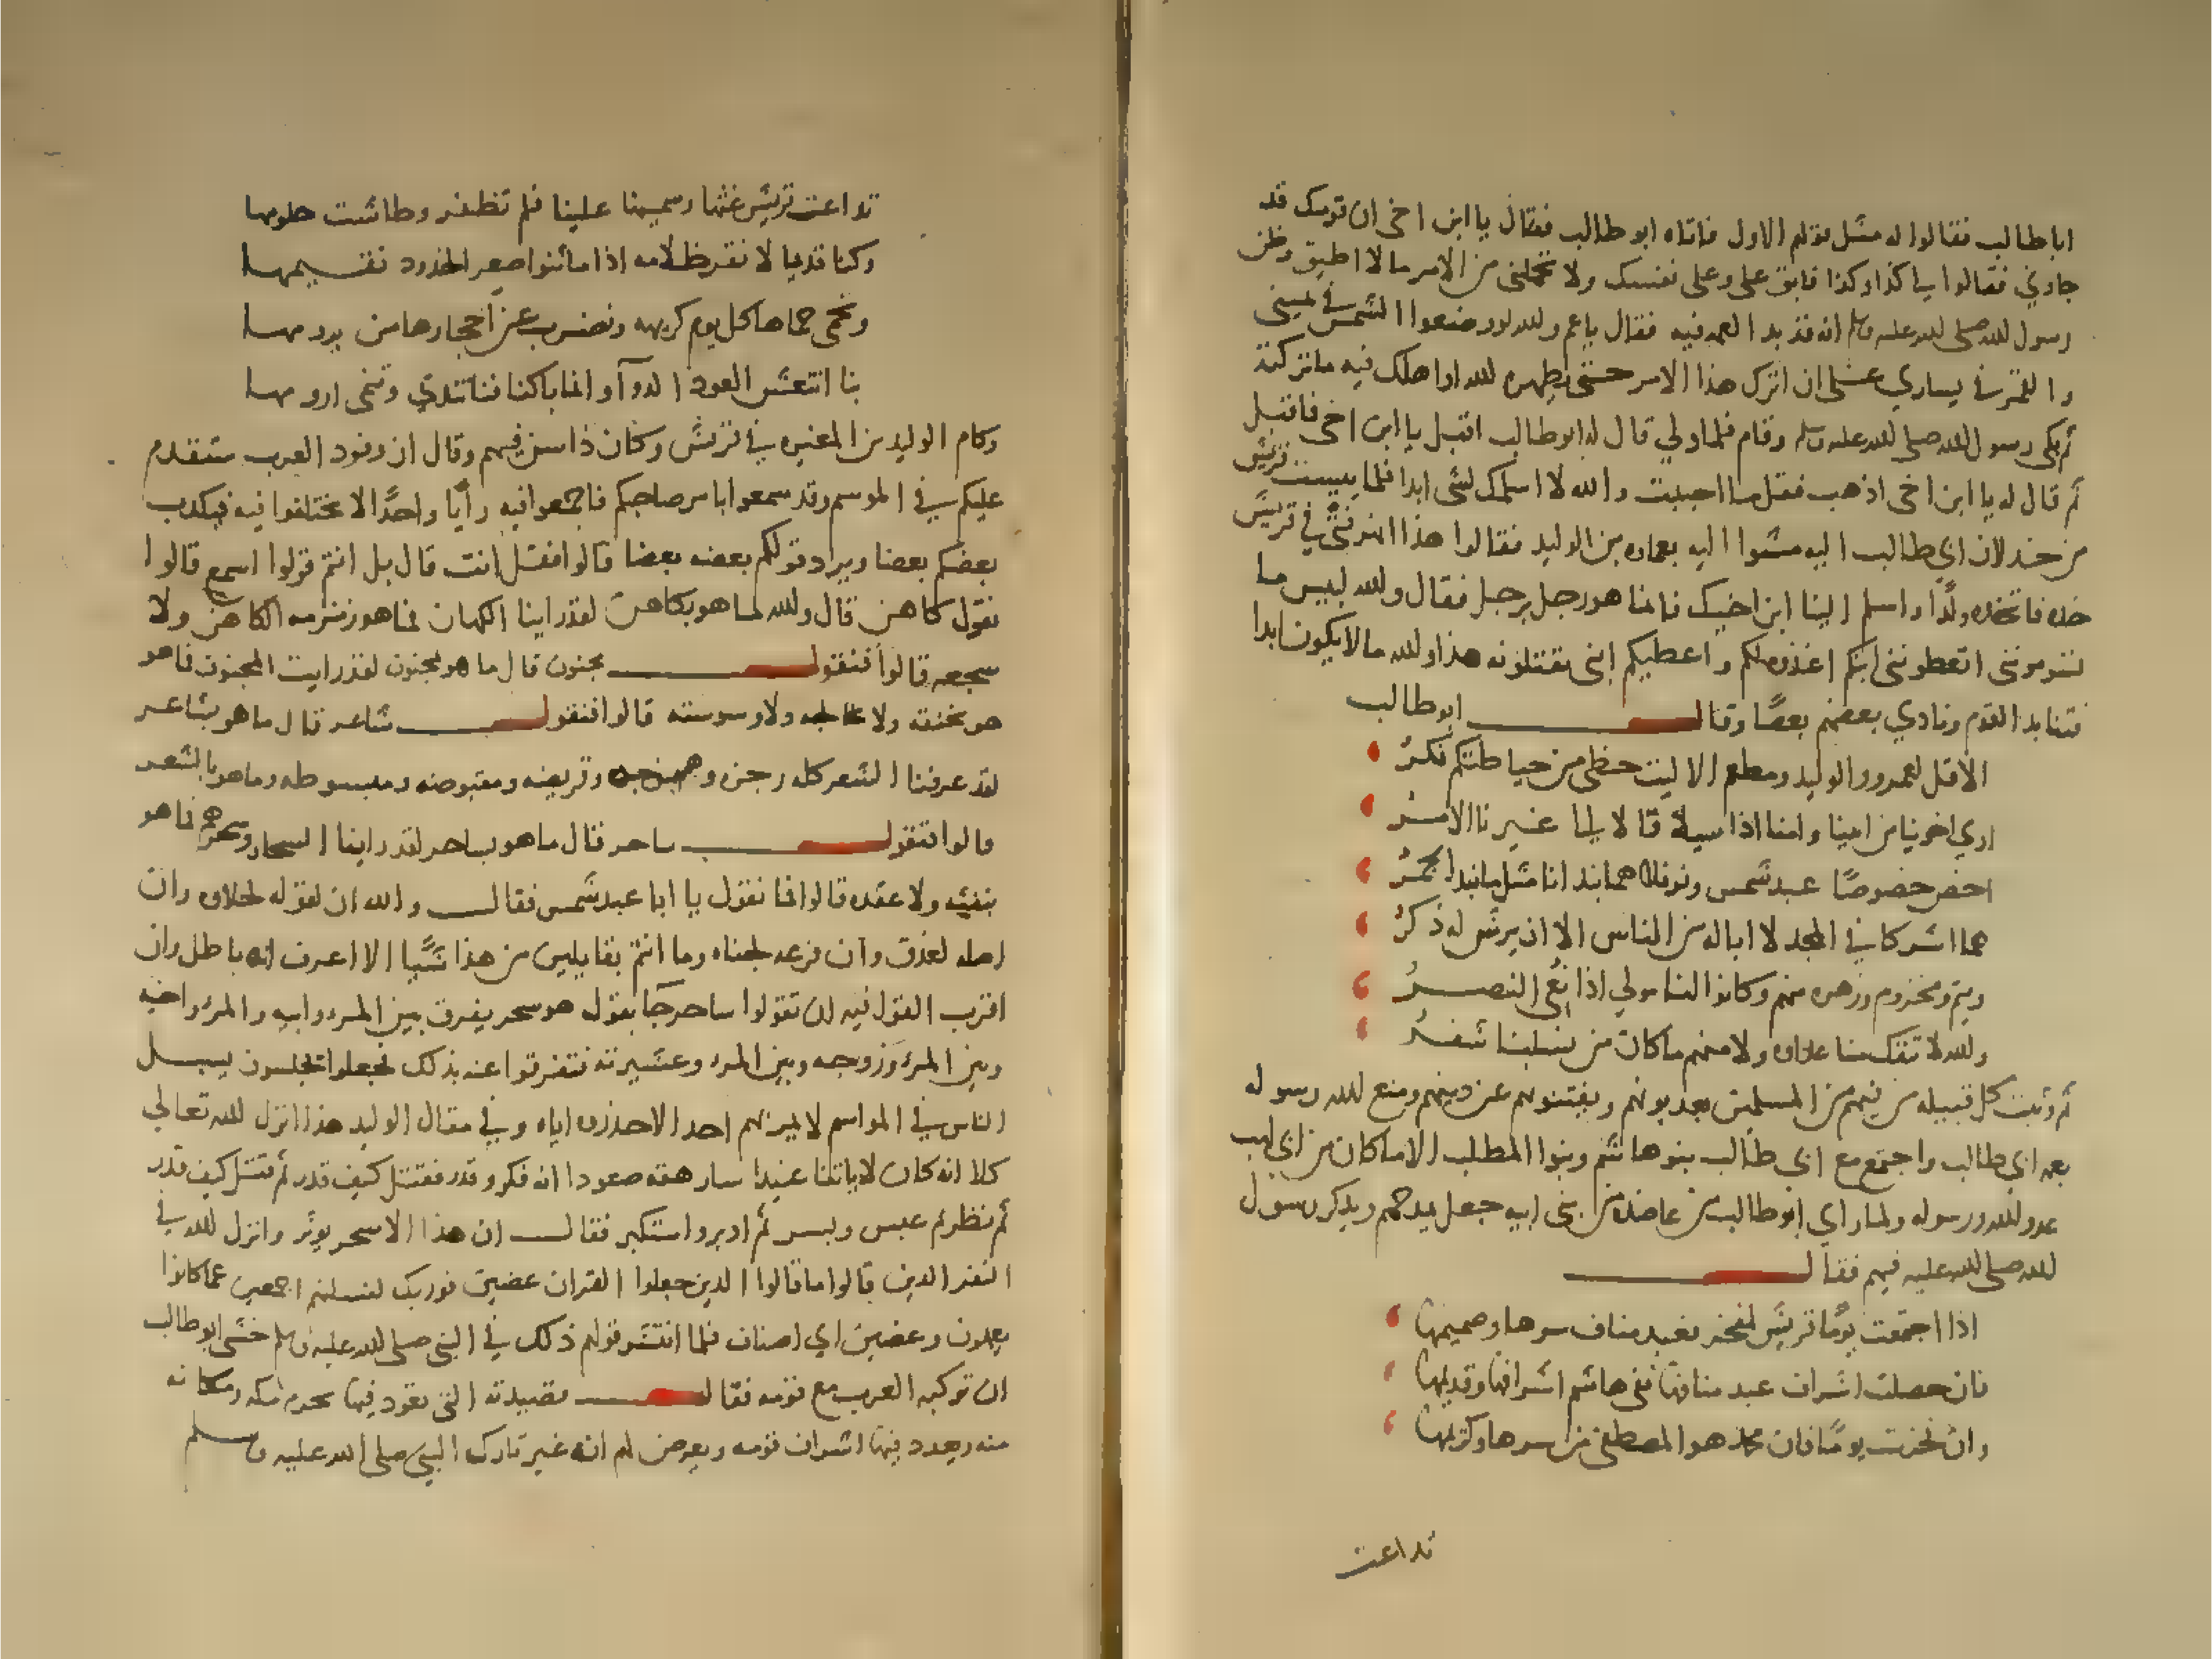 ابا طالب فقالوا له مثل قولهم الاول فاتاه ابو طالب فقال يا ابن اخي ان قومك قد
جاوني فقالوا لي كذا وكذا فابق علي وعلى نفسك ولا تحملني من الامر مالا اطيق وظن
رسول الله صلى الله عليه وسلم انه قد بدا لعمه فيه فقال يا عم والله لو وضعوا الشمس في يميني
والقمر في يساري على ان اترك هذا الامر حتى يظهره الله او اهلك فيه ما تركته
ثم بكى رسول الله صلى الله عليه وسلم وقام فلما ولي قال له ابو طالب اقبل يا ابن اخي فاقبل
ثم قال له يا ابن اخي اذهب فقل ما احببت والله لا اسلمك لشى ابدا فلما يييست قريش
من خذلان ابي طالب اليه مشوا اليه بعماره بن الوليد فقالوا هذا انهد فتى في قريش
خذه فاتخذه ولدا واسلم الينا ابن اخيك فانما هو رجل برجل فقال والله لبيس ما
تسومونني اتعطونني ابنكم اغذوه لكم واعطيكم ابني تقتلونه هذا والله مالا يكون ابدا
فتنابد القوم ونادي بعضهم بعضا وقال ابو طالب
الا قل لعمرو والوليد ومطعم الا ليت حظي من حياطتكم بكر
اري اخوينا من ابينا وامنا اذا سيلا قالا الى غيرنا الامر
اخص خصوصا عبد شمس ونوفلا هما نبذانا مثل ما نبذ الجمر
هما اشركا في المجد لا ابا له من الناس الا ان يرس له ذكر
وتيم ومخزوم وزهره منهم وكانوا لنا مولي اذا بغي النصر
والله لا تنفك منا عداوه ولا منهم ما كان من نسلنا شفر
ثم وثبت كل قبيله من فيهم من المسلمين يعدبونهم ويفتنونهم عن دينهم ومنع الله رسوله
بعمه ابي طالب واجتمع مع ابي طالب بنو هاشم وبنوا المطلب الا ما كان من ابي لهب
عدو الله ورسوله ولما راي ابو طالب من عاضده من بني ابيه جعل يمدحهم ويذكر رسول
الله صلى الله عليه فيهم فقال
اذا اجتمعت يوما قريش لمفخر فعبد مناف سرها وصميمها
فان حصلت اشراف عبد منافها ففي هاشم اشرافها وقديمها
وان فخرت يوما فان محمدا هو المصطفى من سرها وكريمها
تداعت
تداعت قريش غثها وسمينها علينا فلم تظفر وطاشت حلومها
وكنا قديما لا نقر ظلامه اذا ما ثنوا صعر الخدود نقيمها
ونحمي حماها كل يوم كريهه ونضرب عن احجارها من يرومها
بنا انتعش العود الذوآ وانما باكنافنا تندي وتنمى ارومها
وكام الوليد بن المغيره في قريش وكان ذا سن فيهم وقال ان وفود العرب ستقدم
عليكم في الموسم وقد سمعوا بامر صاحبكم فاجمعوا فيه رايا واحدا لا تختلفوا فيه فيكدب
بعضكم بعضا ويرد قولكم بعضه بعضا قالوا فقل انت قال بل انتم قولوا اسمع قالوا
نقول كاهن قال والله ما هو بكاهن لقد راينا الكهان فما هو زمزمه الكاهن ولا
سجعه قالوا فنقول مجنون قال ما هو مجنون لقد رايت المجنون فما هو
هو بخنقه ولا تخالجه ولا وسوسته قالوا فنقول شاعر قال ما هو بشاعر
لقد عرفنا الشعر كله رجزه وهزجه وقريضه ومقبوضه ومبسوطه وما هو بالشعر
قالوا فنقول ساحر قال ما هو بساحر لقد راينا السحار وسحرهم فما هو
بنفثه ولا عقده قالوا فما نقول يا ابا عبد شمس فقال والله ان لقوله لحلاوه وان
اصله لعذق وان فرعه لجناه وما انتم بقايلين من هذا شيا الا اعرف انه باطل وان
اقرب القول فيه لان تقولوا ساحر جا بقول هو سحر يفرق بين المرء وابيه والمرء واخيه
وبين المرء وزوجه وبين المرء وعشيرته فتفرقوا عنه بذلك فجعلوا يجلسون بسبل
الناس في المواسم لا يمر بهم احد الا حذروه اياه وفي مقال الوليد هذا انزل الله تعالى
كلا انه كان لاياتنا عنيدا سارهقه صعودا انه فكر وقدر فقتل كيف قدر ثم قتل كيف قدر
ثم نظر ثم عبس وبسر ثم ادبر واستكبر فقال ان هذا الا سحر يوثر وانزل الله في
النفر الدين قالوا ما قالوا الدين جعلوا القران عضين فوربك لنسلنهم اجمعين عما كانوا
يعملون وعضين اي اصناف فلما انتشر قولهم ذلك في النبي صلى الله عليه وسلم خشى ابو طالب
ان تركبه العرب مع قومه فقال قصيدته التي تعود فيها بحرم مكه ومكانه
منه ويعدد فيها اشراف قومه ويعرض لهم انه غير تارك النبي صلى الله عليه وسلم